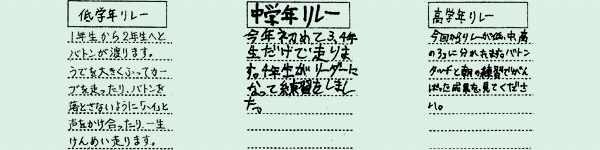 低学年リレー
1年生から2年生へと
バトンが渡ります。
うでを大きくふってカー
ブを走ったり、バトンを
落とさないように「ハイ」と
声をかけ合ったり、一生
けんめい走ります。
中学年リレー
今年初めて3、4年
生だけで走りま
す。4年生がリーダーに
なって練習をしまし
た。
高学年リレー
今回からリレーが低、中、高
の3つに分かれます。バトン
タッチと朝の練習でがん
ばった成果を見てくださ
い。